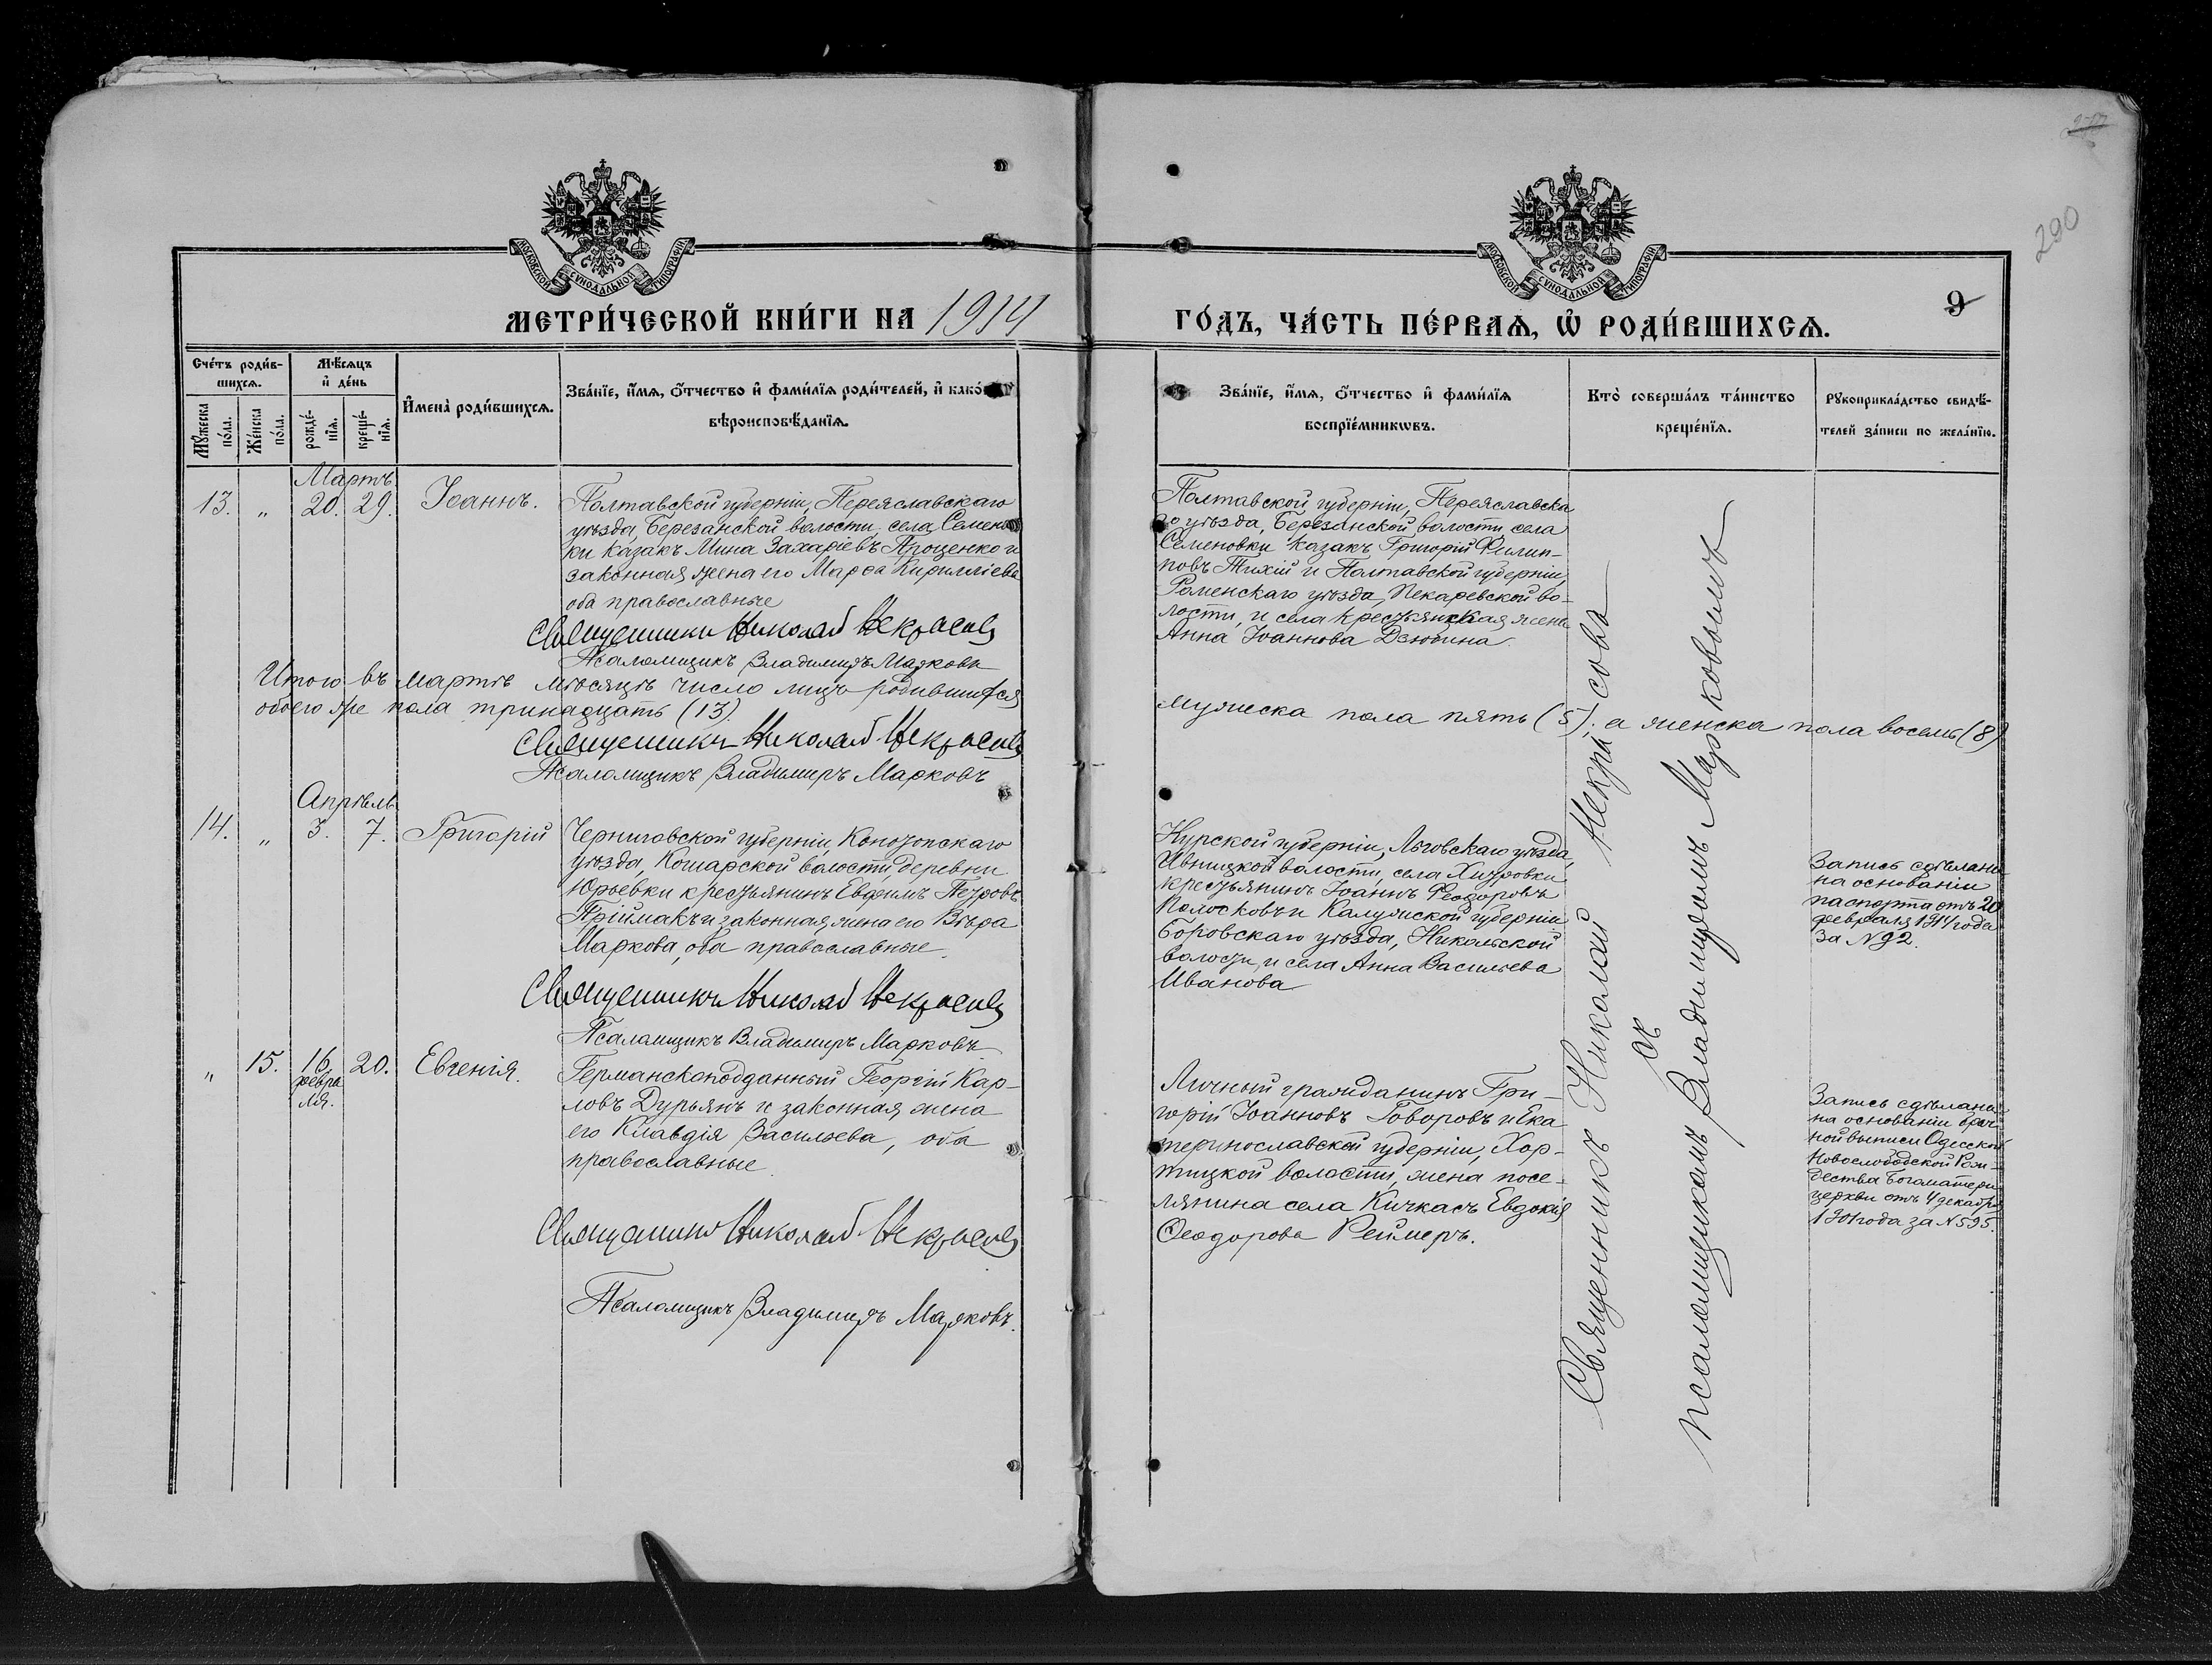 290
МОСКОВСКОЙ СУНОДАЛЬНОЙ ТИПОГРАФІИ
МОСКОВСКОЙ СУНОДАЛЬНОЙ ТИПОГРАФІИ
МЕТРИ́ЧЕСКОЙ КНИ́ГИ НА 1914
ГО́ДЪ, ЧА́СТЬ ПЕ́РВАѦ, Ѽ РОДИ́ВШИХСѦ.
9
Сче́тъ роди́в-
шихсѧ.
Мѣ́сѧцъ
и҆ де́нь
Мꙋ́жеска
по́ла.
Же́нска
по́ла.
рожде́-
нїѧ.
креще́-
нїѧ.
И҆мена̀ роди́вшихсѧ.
Зва́нїе, и҆́мѧ, ѻ҆́тчество и҆ фами́лїѧ роди́телей, и҆ како́
вѣроисповѣ́данїѧ.
Зва́нїе, и҆́мѧ, ѻ҆́тчество и҆ фами́лїѧ
воспрїе́мникѡвъ.
Кто̀ соверша́лъ та́инство
креще́нїѧ.
Рꙋкоприкла́дство свидѣ́-
телей за́писи по жела́нїю.
Мартъ
13. „ 20. 29. Іоаннъ.
Полтавской губерніи, Переяславскаго
уѣзда, Березанской волости, села Семенов
ки казакъ Мина Захаріевъ Проценко и
законная жена его Марѳа Кирилліева
оба православные
Священникъ Николай Некрасовъ
Псаломщикъ Владимиръ Марковъ
Полтавской губерніи, Переяславска
го уѣзда, Березанской волости села
Семеновки казакъ Григорій Филип-
повъ Тихій и Полтавской губерніи,
Роменскаго уѣзда, Пекаревской во-
лости, и села крестьянская жена
Анна Іоаннова Дзюбина.
Итого въ мартѣ мѣсяцѣ число лицъ родившихся
мужеска пола пять (5). а женска пола восемь (8)
обоего же пола тринадцать (13).
Священникъ Николай Некрасовъ
Псаломщикъ Владимиръ Марковъ
Апрѣль
14. „ 3. 7. Григорій
Черниговской губерніи, Конотопскаго
уѣзда, Кошарской волости, деревни
Юрьевки крестьянинъ Евфимъ Петровъ
Пріймакъ и законная жена его Вѣра
Маркова, оба православные.
Священникъ Николай Некрасовъ
Псаломщикъ Владимиръ Марковъ
Курской губерніи, Льговскаго уѣзда,
Ивницкой волости, села
крестьянинъ Іоаннъ Ѳеодоровъ
Полосковъ и Калужской губерніи
Боровскаго уѣзда, Никольской
волости, и села Анна Васильева
Иванова
Запись сдѣлана
на основаніи
паспорта отъ 20
февраля 1914 года
за № 92.
„ 15. 16 февра
ля. 20. Евгенія.
Германскоподданный Георгій Кар-
ловъ Дурьянъ и законная жена
его Клавдія Васильева, оба
православные
Священникъ Николай Некрасовъ
Псаломщикъ Владимиръ Марковъ.
Личный гражданинъ Гри-
горій Іоанновъ Говоровъ и Ека
теринославской губерніи, Хор-
тицкой волости, жена посе-
лянина села Кичкасъ Евдокія
Ѳеодорова Реймеръ.
Запись сдѣлана
на основаніи брач-
ной выписи Одесской
Новослободской Рож-
дества Богоматери
церкви отъ 4 декабря
1901 года за № 595.
Священникъ Николай Некрасовъ
съ
псаломщикомъ Владимиромъ Марковымъ